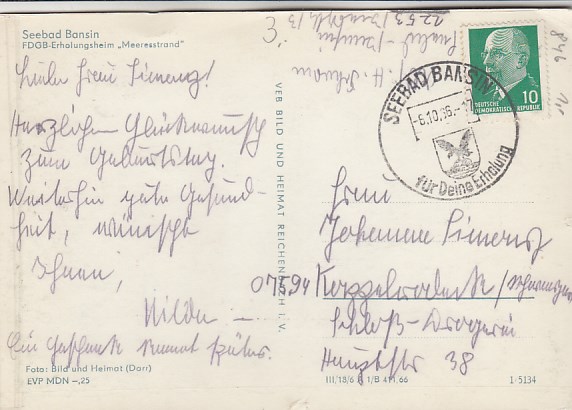 Seebad Bansin
FDGB-Erholungsheim „Meeresstrand"
Liebe Frau Simenz!
Herzlichen Glückwunsch
zum Geburtstag.
Weiterhin gute Gesund-
heit, wünscht
Ihnen,
Hilde
Ein Geschenk kommt später.
Foto: Bild und Heimat (Dorr)
EVP MDN –,25
VEB BILD UND HEIMAT REICHENBACH I. V.
2253
SEEBAD BANSIN
-6.10.66.-17
für Deine Erholung
10
DEUTSCHE
DEMOKRATISCHE REPUBLIK
846
Frau
Johanna
07594 Kappelrodeck/
Schloß-Drogerie
Hauptstr 38
III/18/6 B 1/B 411 66
1-5134